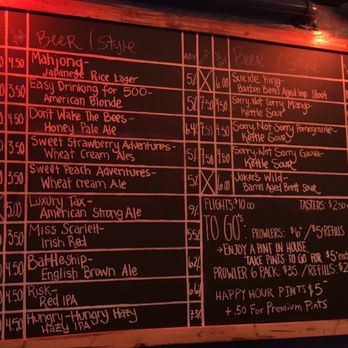 Beer / Style
4.50 Mahjong-
Japanese Rice Lager 5%
3.50 Easy Drinking for 500-
American Blonde
4.50 Don't Wake The Bees-
Honey Pale Ale
3.50 Sweet Strawberry Adventures-
Wheat Cream Ales
3.50 Sweet Peach Adventures-
Wheat Cream Ale
5.00 Luxury Tax-
American Strong Ale
3.50 Miss Scarlet-
Irish Red
4.50 Battleship-
English Brown Ale
4.50 Risk-
Red IPA
4.50 Hungry-Hungry Hazy
Hazy IPA
Beer / Style
Suicide King-
Bourbon Barrel Aged Imp. Stout
7.50 Sorry, Not Sorry Mango-
Kettle Sour
Sorry, Not Sorry Pomegranate-
Kettle Sour
7.50 Sorry, Not Sorry Guava-
Kettle Sour
Joker's Wild-
Barrel Aged Brett Sour
FLIGHTS $10.00 TASTERS $2.50
TO GO'S: PROWLERS: $6 / $5/REFILLS
→ENJOY A PINT IN HOUSE
TAKE PINTS TO GO FOR $5
PROWLER 6 PACK: $35 / REFILLS:
HAPPY HOUR PINTS $5
+.50 For Premium Pints